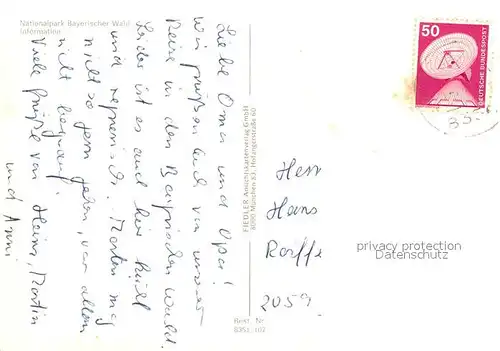 Nationalpark Bayerischer Wald
Information
Liebe Oma und Opa!
Wir grüßen Euch von unserer
Reise in den Bayrischen Wald.
Leider ist es auch hier kühl
und regnerisch. Martin mag
nicht so gern gehen, vor allem
nicht bergauf.
Viele Grüße von Heini, Martin
und Anni
FIEDLER Ansichtskartenverlag GmbH
8000 München 83, Hofangerstraße 60
Best. Nr.
8351 102
50
DEUTSCHE BUNDESPOST
835
Herrn
Hans
2059
privacy protection
Datenschutz